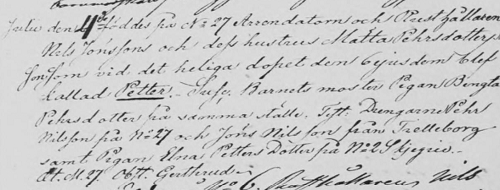 Julii den 4de föddes på No 27 Arrendatorn och Prest hållaren
Nels Jonssons och dess hustrus Matta Pehrsdotter
son som vid det heliga dopet den ejusdem blef
kallad Petter. Susc. Barnets moster Pigan Bengta
Pehrsdotter från samma ställe. Test. Drengarne Pehr
Nilsson från No 27 och Jöns Nilsson från Trelleborg
samt Pigan Elna Petters Dotter från No 2
Æt. M. 27. Obst. Gerthrud
Nils